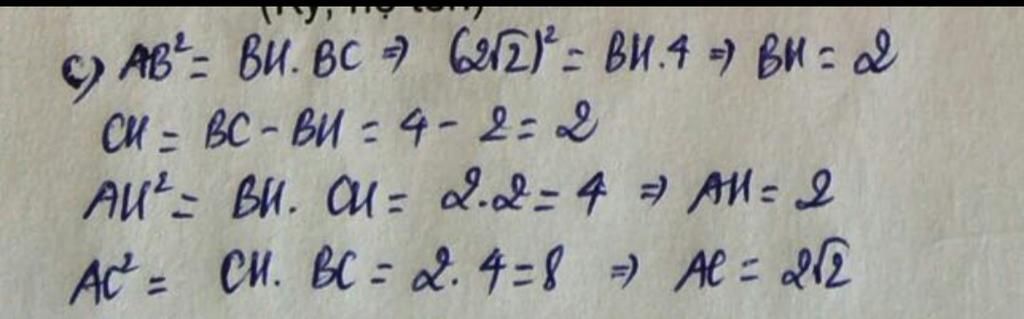 c) AB² = BH. BC ⇒ (2√2)² = BH.4 ⇒ BH = 2
CH = BC - BH = 4 - 2 = 2
AH² = BH. CH = 2.2 = 4 ⇒ AH = 2
AC² = CH. BC = 2. 4 = 8 ⇒ AC = 2√2